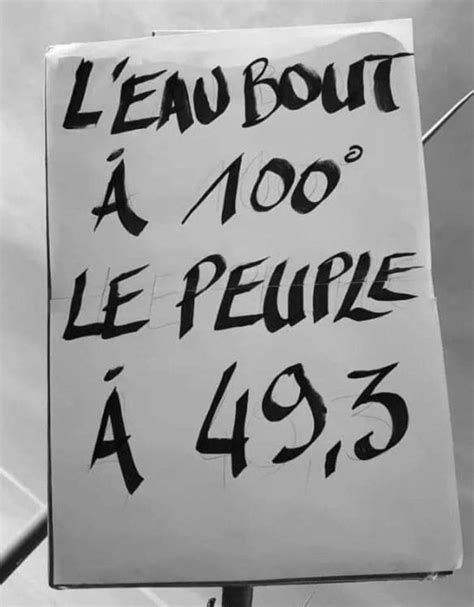 L'EAU BOUT
À 100°
LE PEUPLE
À 49,3